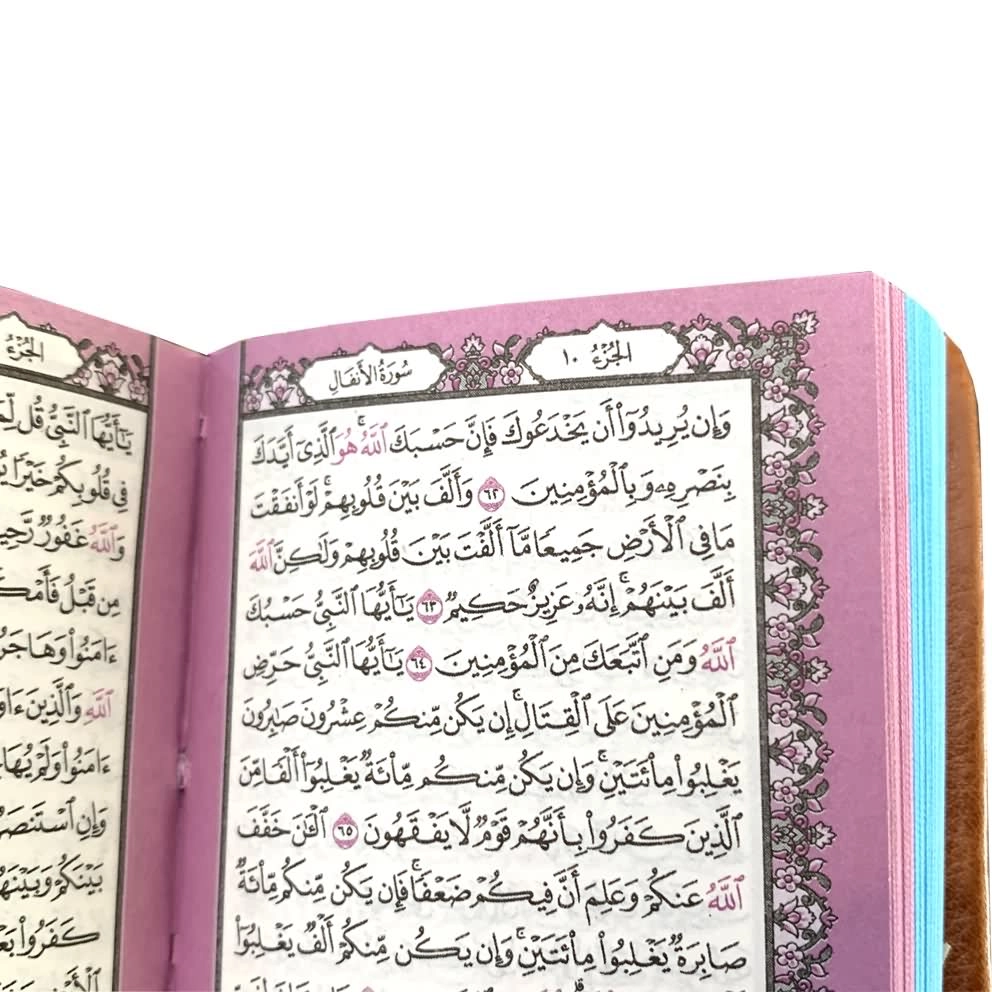 الجُزْءُ ١٠
سُورَةُ الأَنفَالِ
وَإِن يُرِيدُوٓا۟ أَن يَخْدَعُوكَ فَإِنَّ حَسْبَكَ ٱللَّهُ ۚ هُوَ ٱلَّذِىٓ أَيَّدَكَ
بِنَصْرِهِۦ وَبِٱلْمُؤْمِنِينَ ٦٢ وَأَلَّفَ بَيْنَ قُلُوبِهِمْ ۚ لَوْ أَنفَقْتَ
مَا فِى ٱلْأَرْضِ جَمِيعًا مَّآ أَلَّفْتَ بَيْنَ قُلُوبِهِمْ وَلَٰكِنَّ ٱللَّهَ
أَلَّفَ بَيْنَهُمْ ۚ إِنَّهُۥ عَزِيزٌ حَكِيمٌ ٦٣ يَٰٓأَيُّهَا ٱلنَّبِىُّ حَسْبُكَ
ٱللَّهُ وَمَنِ ٱتَّبَعَكَ مِنَ ٱلْمُؤْمِنِينَ ٦٤ يَٰٓأَيُّهَا ٱلنَّبِىُّ حَرِّضِ
ٱلْمُؤْمِنِينَ عَلَى ٱلْقِتَالِ ۚ إِن يَكُن مِّنكُمْ عِشْرُونَ صَٰبِرُونَ
يَغْلِبُوا۟ مِا۟ئَتَيْنِ ۚ وَإِن يَكُن مِّنكُم مِّا۟ئَةٌ يَغْلِبُوٓا۟ أَلْفًا مِّنَ
ٱلَّذِينَ كَفَرُوا۟ بِأَنَّهُمْ قَوْمٌ لَّا يَفْقَهُونَ ٦٥ ٱلْـَٰٔنَ خَفَّفَ
ٱللَّهُ عَنكُمْ وَعَلِمَ أَنَّ فِيكُمْ ضَعْفًا ۚ فَإِن يَكُن مِّنكُم مِّا۟ئَةٌ
صَابِرَةٌ يَغْلِبُوا۟ مِا۟ئَتَيْنِ ۚ وَإِن يَكُن مِّنكُمْ أَلْفٌ يَغْلِبُوٓا۟
الجُزْءُ
يَٰٓأَيُّهَا ٱلنَّبِىُّ قُل
فِى قُلُوبِكُمْ خَيْرًا
وَٱللَّهُ غَفُورٌ
مِن قَبْلُ
ءَامَنُوا۟ وَهَاجَرُ
ٱللَّهِ وَٱلَّذِينَ
ءَامَنُوا۟ وَلَمْ
وَإِنِ ٱسْتَنصَرُ
بَيْنَكُمْ وَبَيْنَهُ
كَفَرُوا۟